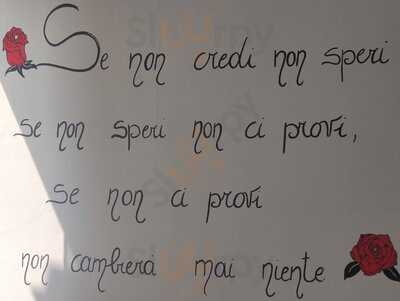 Se non credi non speri
se non speri non ci provi,
se non ci provi
non cambierà mai niente